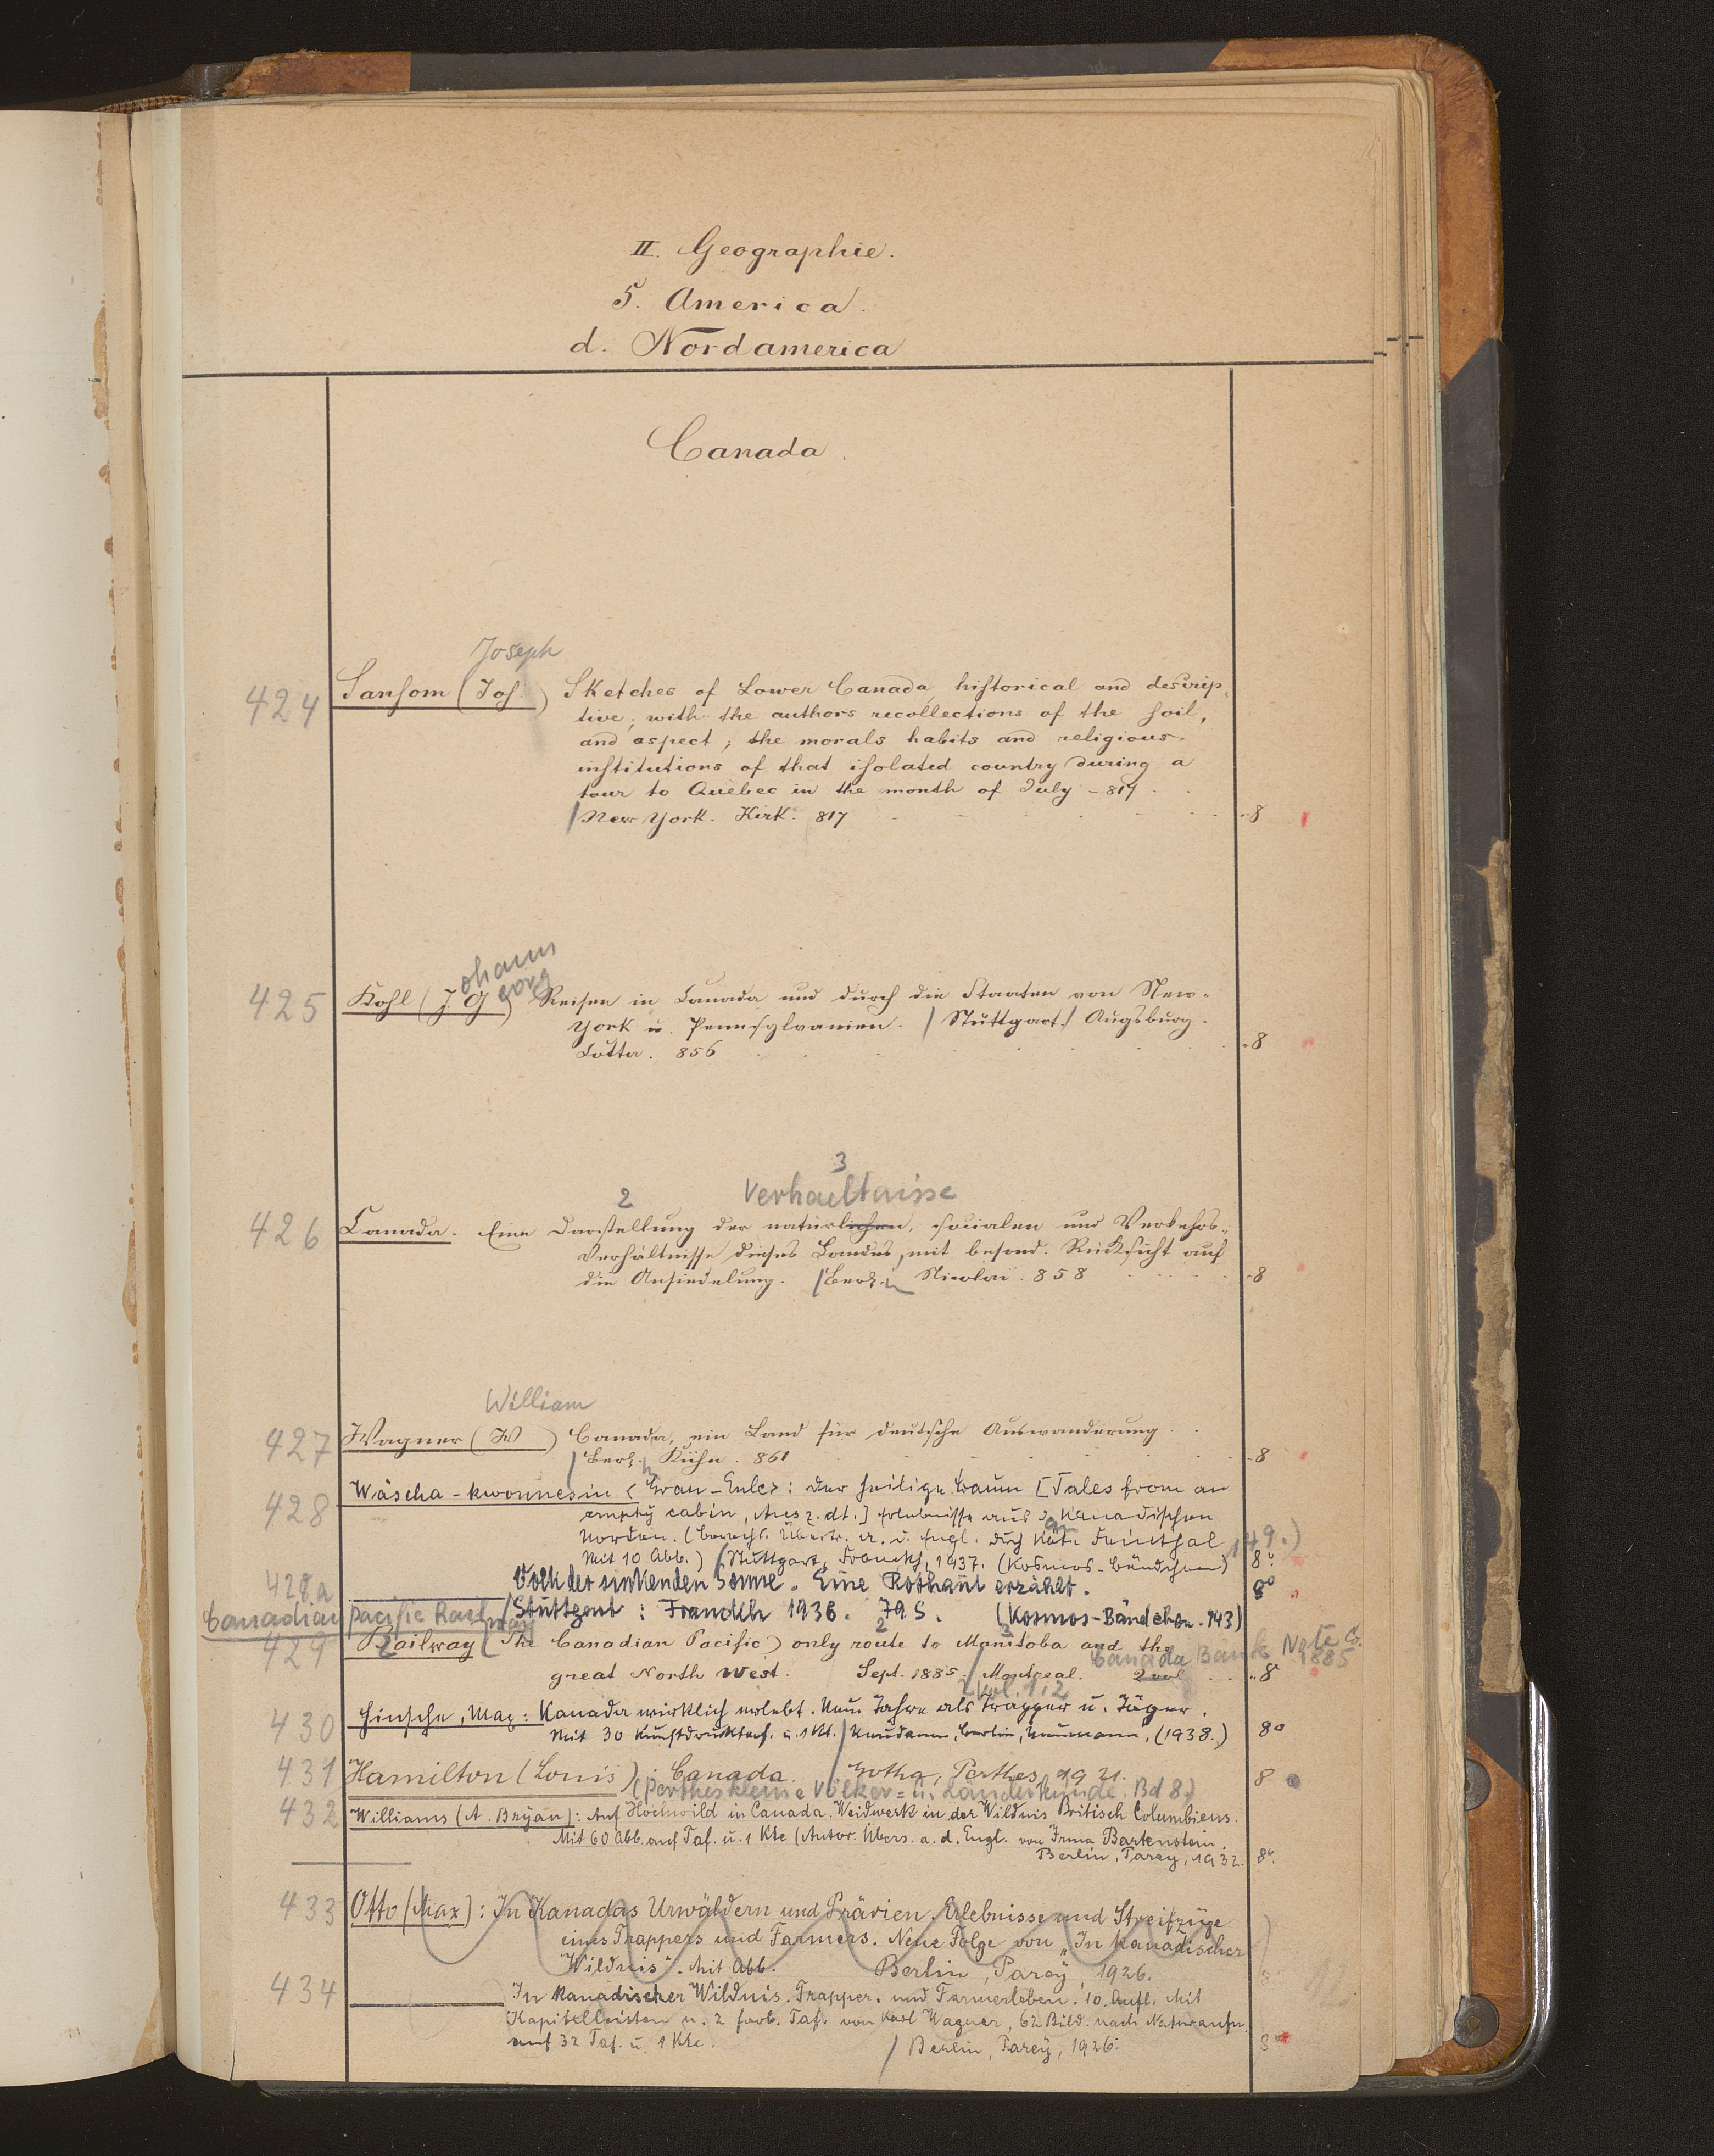 II. Geographie.
5. America.
d. Nordamerica
Canada.
Joseph
424 Sansom (Jos.) Sketches of Lower Canada, historical and descrip-
tive; with the authors recollections of the soil,
and aspect; the morals habits and religious
institutions of that isolated country during a
tour to Quèbec in the month of July -817
/New York. Kirk. 817 8
ohann
eorg
425 Kohl (J. G) Reisen in Canada und durch die Staaten von New-
York u. Pennsylvanien. / Stuttgart / Augsburg.
Cotta. 856 8
3
2 Verhaeltnisse
426 Canada. Eine Darstellung der natürlichen, socialen und Verkehrs-
Verhältnisse dieses Landes, mit besond. Rücksicht auf
die Ansiedelung. /Berlin Nicolai. 858 8
William
427 Wagner (W) Canada, ein Land für deutsche Auswanderung
/Berl. Kühn. 861 8
428 Wäscha-kwonnesin <Grau-Eule>: Der heilige Baum [Tales from an
empty cabin, Ausz. dt.] Erlebnisse aus d. Kanadischen
Norden. (Berecht. Übertr. a. d. Engl. durch Käte Freinthal
Mit 10 Abb.) / Stuttgart, Franckh, 1937. (Kosmos-Bändchen) 149.) 8°
428a Volk der sinkenden Sonne. Eine Rothaut erzählt. 8°
/Stuttgart: Franckh 1936. 79 S. (Kosmos-Bändchen. 143)
Canadian pacific Railway
2 3
429 Railway (The Canadian Pacific) only route to Manitoba and the
Canada Bank Note Co.
1885
great North West. Sept. 1885. / Montreal. 2 vol 8
2 Vol. 1.2
430 Hinsche, Max: Kanada wirklich erlebt. Neun Jahre als Trapper u. Jäger.
Mit 30 Kunstdrucktaf. u. 1 Kt. / Neudamm, Berlin, Neumann, (1938.) 8°
431 Hamilton (Louis): Canada. / Gotha, Perthes, 1921. 8
(Perthes kleine Völker= u. Länderkunde. Bd 8.)
432 Williams (A. Bryan): Auf Hochwild in Canada. Weidwerk in der Wildnis Britisch Columbiens.
Mit 60 Abb. auf Taf. u. 1 Kte (Autor. Übers. a. d. Engl. von Irma Bartenstein.
Berlin, Parey, 1932. 8°.
433 Otto (Max): In Kanadas Urwäldern und Prärien. Erlebnisse und Streifzüge
eines Trappers und Farmers. Neue Folge von "In kanadischer
Wildnis". Mit Abb. Berlin, Parey, 1926.
434 In Kanadischer Wildnis. Trapper- und Farmerleben. 10. Aufl. Mit
Kapitelleisten u. 2 farb. Taf. von Karl Wagner, 62 Bild. nach Naturaufn.
auf 32 Taf. u. 1 Kte. / Berlin, Parey, 1926. 8°